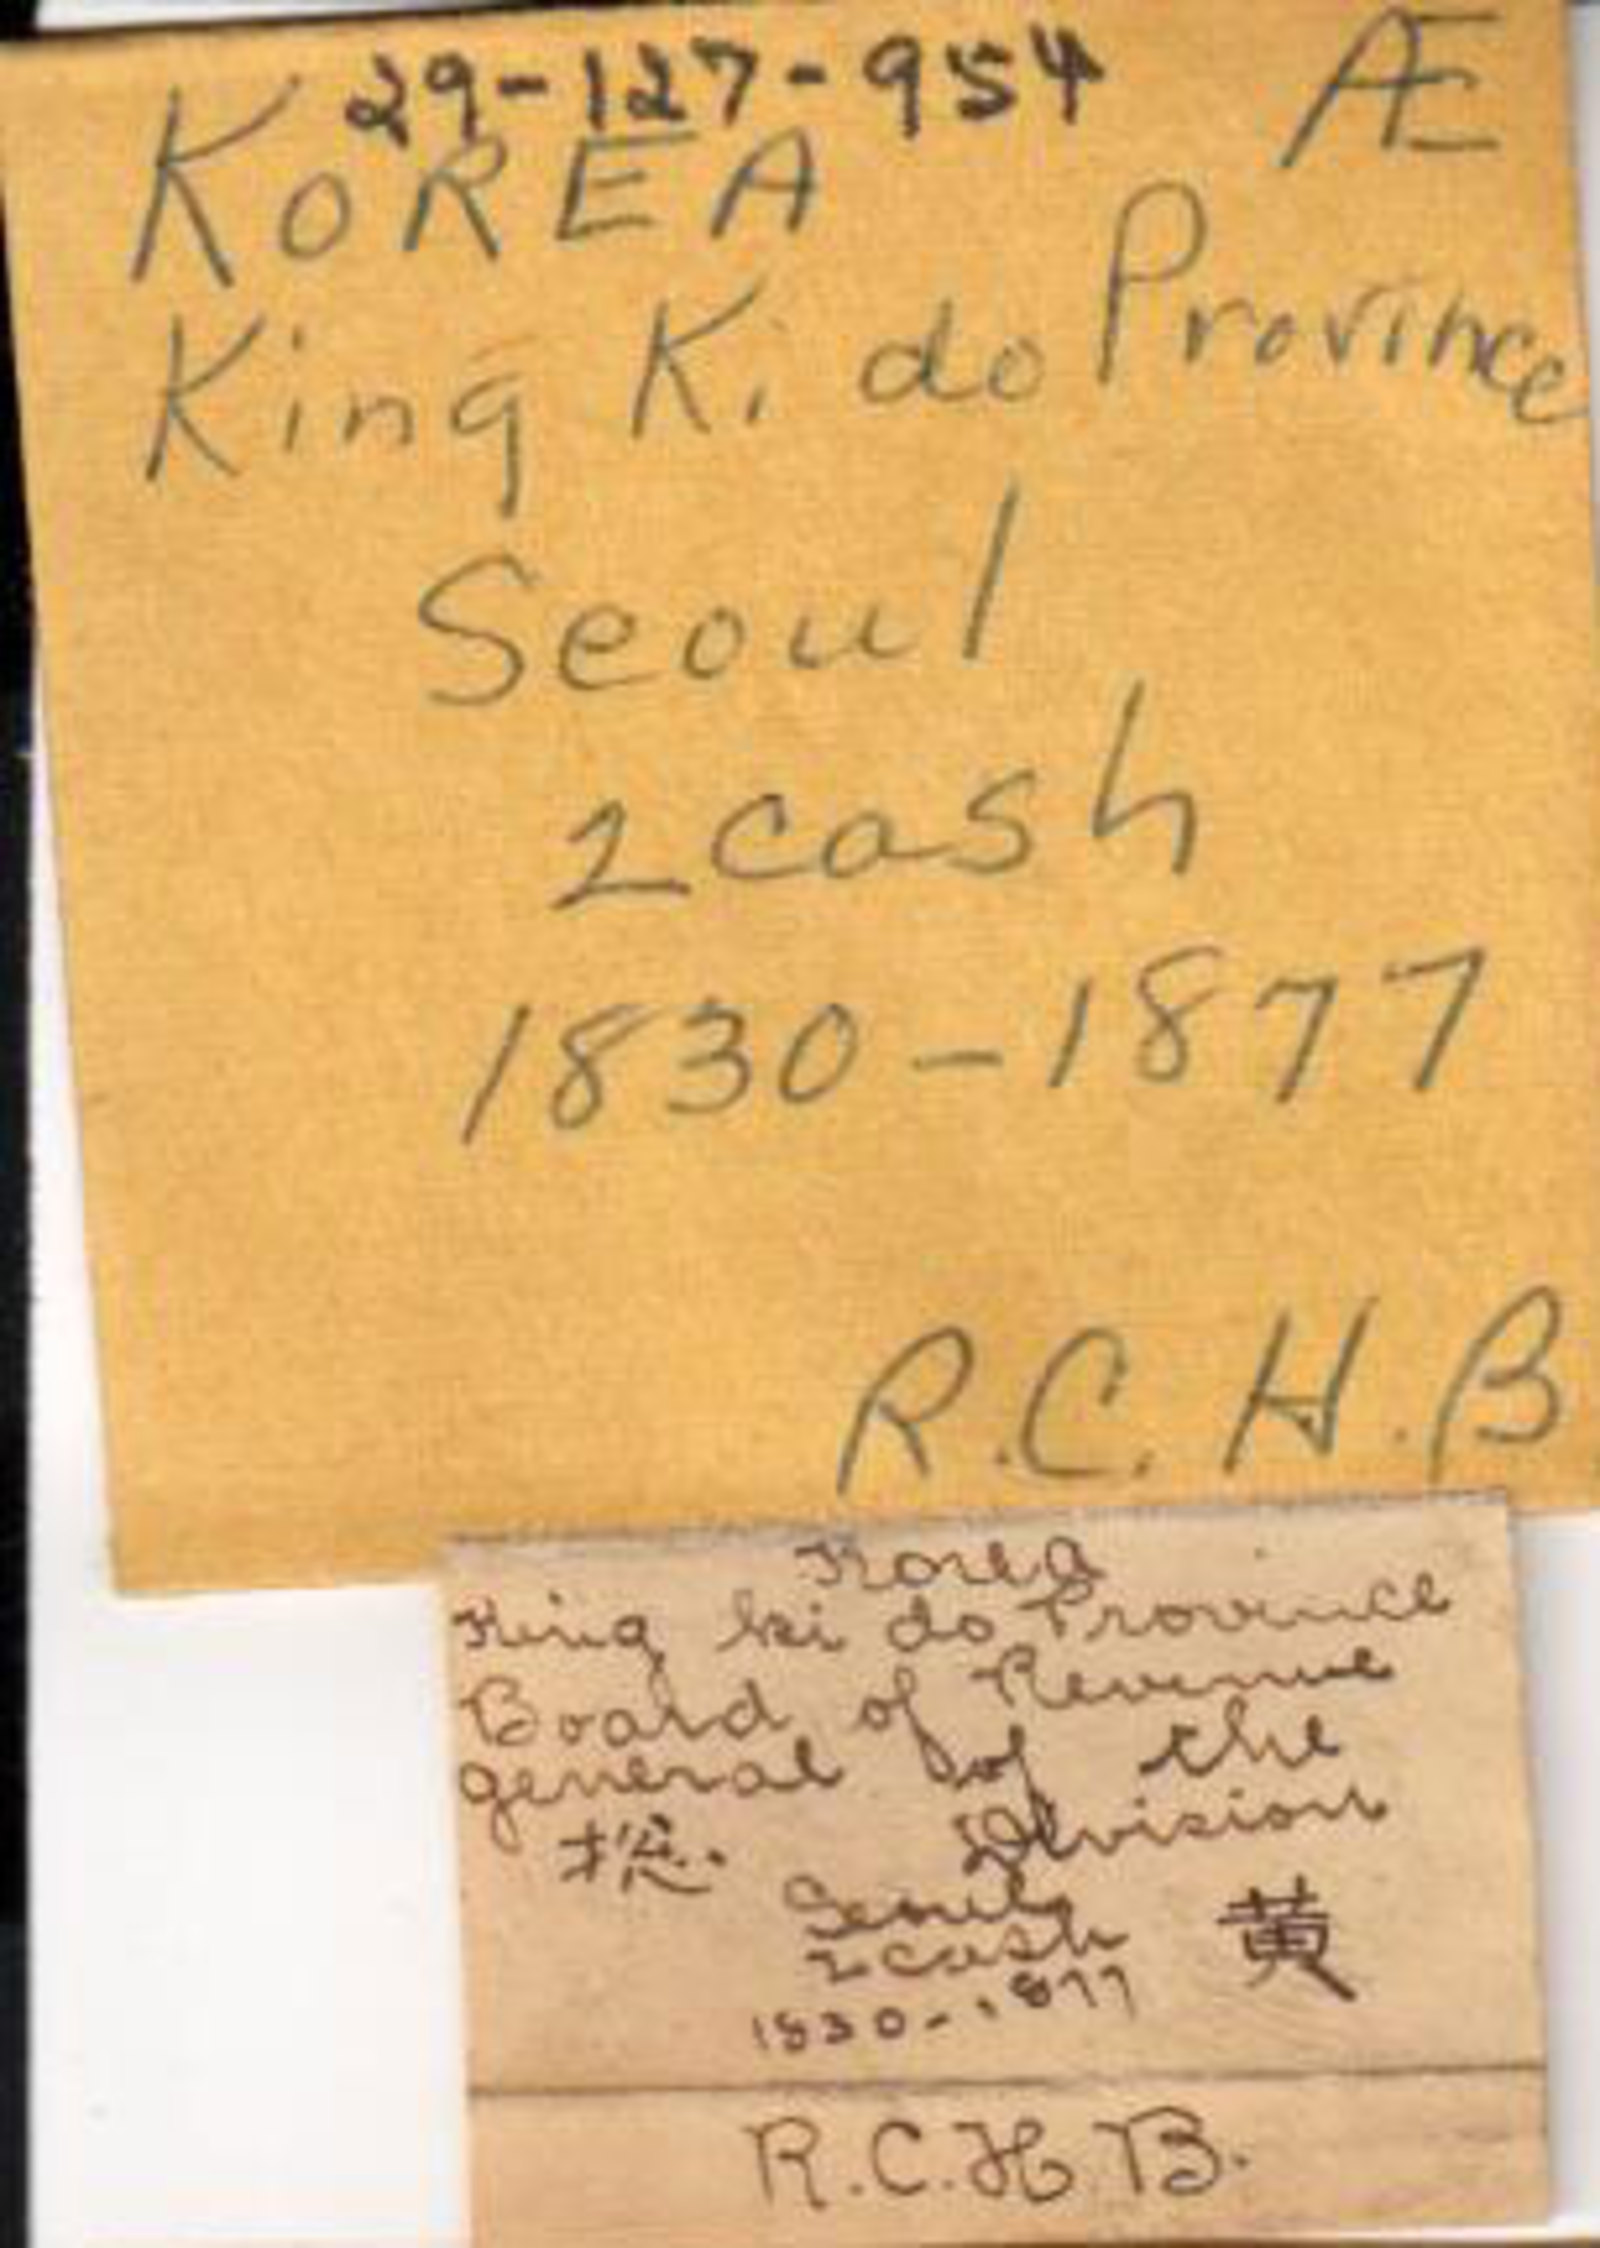 29-127-954 Æ
KOREA
King Ki do Province
Seoul
2 cash
1830-1877
R.C.H.B
Korea
King ki do Province
Board of Revenue
general of the
揔. Division
Seoul
2 cash 黄
1830-1877
R.C.H.B.